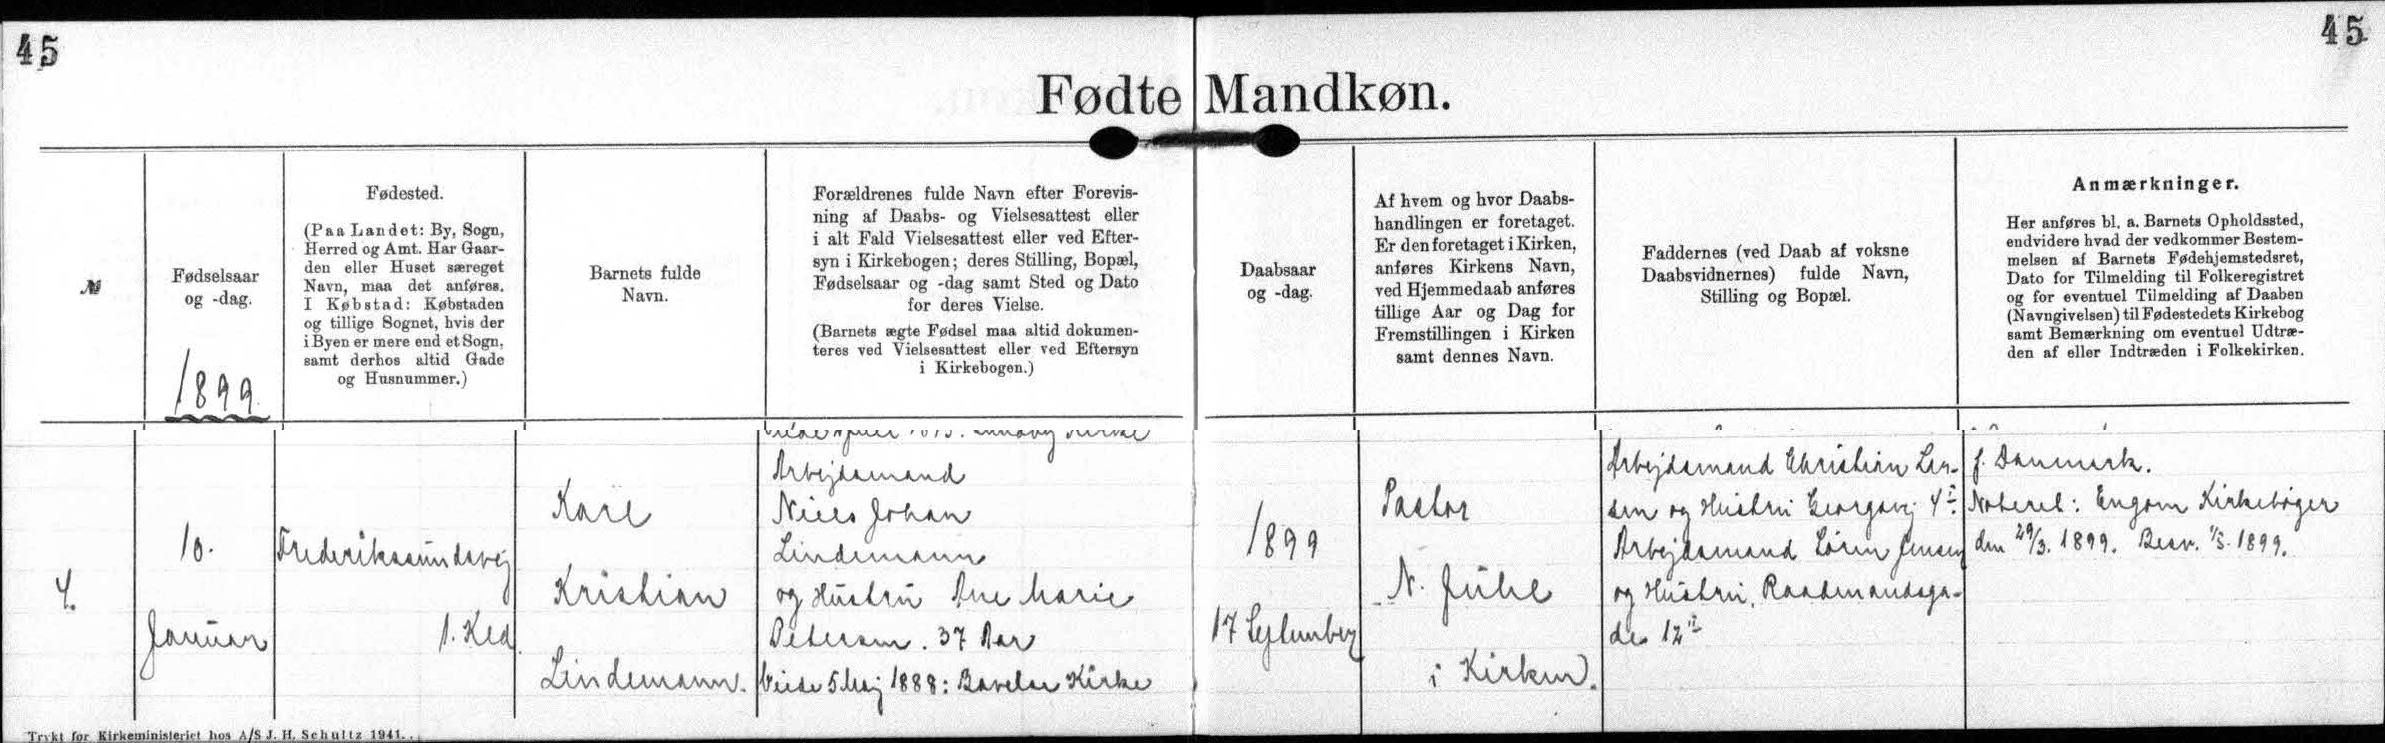 45
45
Fødte Mandkøn.
№
Fødselsaar
og -dag.
1899.
Fødested.
(Paa Landet: By, Sogn,
Herred og Amt. Har Gaar-
den eller Huset særeget
Navn, maa det anføres.
I Købstad: Købstaden
og tillige Sognet, hvis der
i Byen er mere end et Sogn,
samt derhos altid Gade
og Husnummer.)
Barnets fulde
Navn.
Forældrenes fulde Navn efter Forevis-
ning af Daabs- og Vielsesattest eller
i alt Fald Vielsesattest eller ved Efter-
syn i Kirkebogen; deres Stilling, Bopæl,
Fødselsaar og -dag samt Sted og Dato
for deres Vielse.
(Barnets ægte Fødsel maa altid dokumen-
teres ved Vielsesattest eller ved Eftersyn
i Kirkebogen.)
Daabsaar
og -dag.
Af hvem og hvor Daabs-
handlingen er foretaget.
Er den foretaget i Kirken,
anføres Kirkens Navn,
ved Hjemmedaab anføres
tillige Aar og Dag for
Fremstillingen i Kirken
samt dennes Navn.
Faddernes (ved Daab af voksne
Daabsvidnernes) fulde Navn,
Stilling og Bopæl.
Anmærkninger.
Her anføres bl. a. Barnets Opholdssted,
endvidere hvad der vedkommer Bestem-
melsen af Barnets Fødehjemstedsret,
Dato for Tilmelding til Folkeregistret
og for eventuel Tilmelding af Daaben
(Navngivelsen) til Fødestedets Kirkebog
samt Bemærkning om eventuel Udtræ-
den af eller Indtræden i Folkekirken.
4.
10.
Januar
Frederikssundsvej
1. Kld.
Karl
Kristian
Lindemann.
Arbejdsmand
Niels Johan
Lindemann
og Hustru Ane Marie
Petersen. 37 Aar
Viede 5 Maj 1888: Bavelse Kirke
1899
17 September
Pastor
N. Juhl
i Kirken.
Arbejdsmand Christian Lar-
sen og Hustru Georgsvej 4 I.
Arbejdsmand Søren Jensen
og Hustru, Raadmandsga-
de 12
f. Danmark.
Noteret: Engom Kirkebøger
den 29/3. 1899. Besv. 1/5. 1899.
Trykt for Kirkeministeriet hos A/S J. H. Schultz 1941.